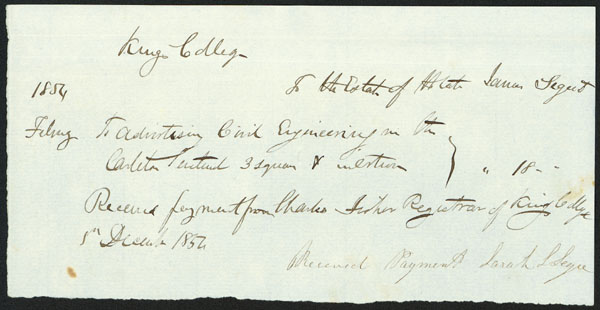 Kings College
1854
To the Estate of the late James Segee
Febry To advertising Civil Engineering in the
Carleton Sentinel 3 squares & insertion } " 18 - -
Received payment from Charles Fisher Registrar of Kings College
5th December 1854
Received Payment Sarah L Segee